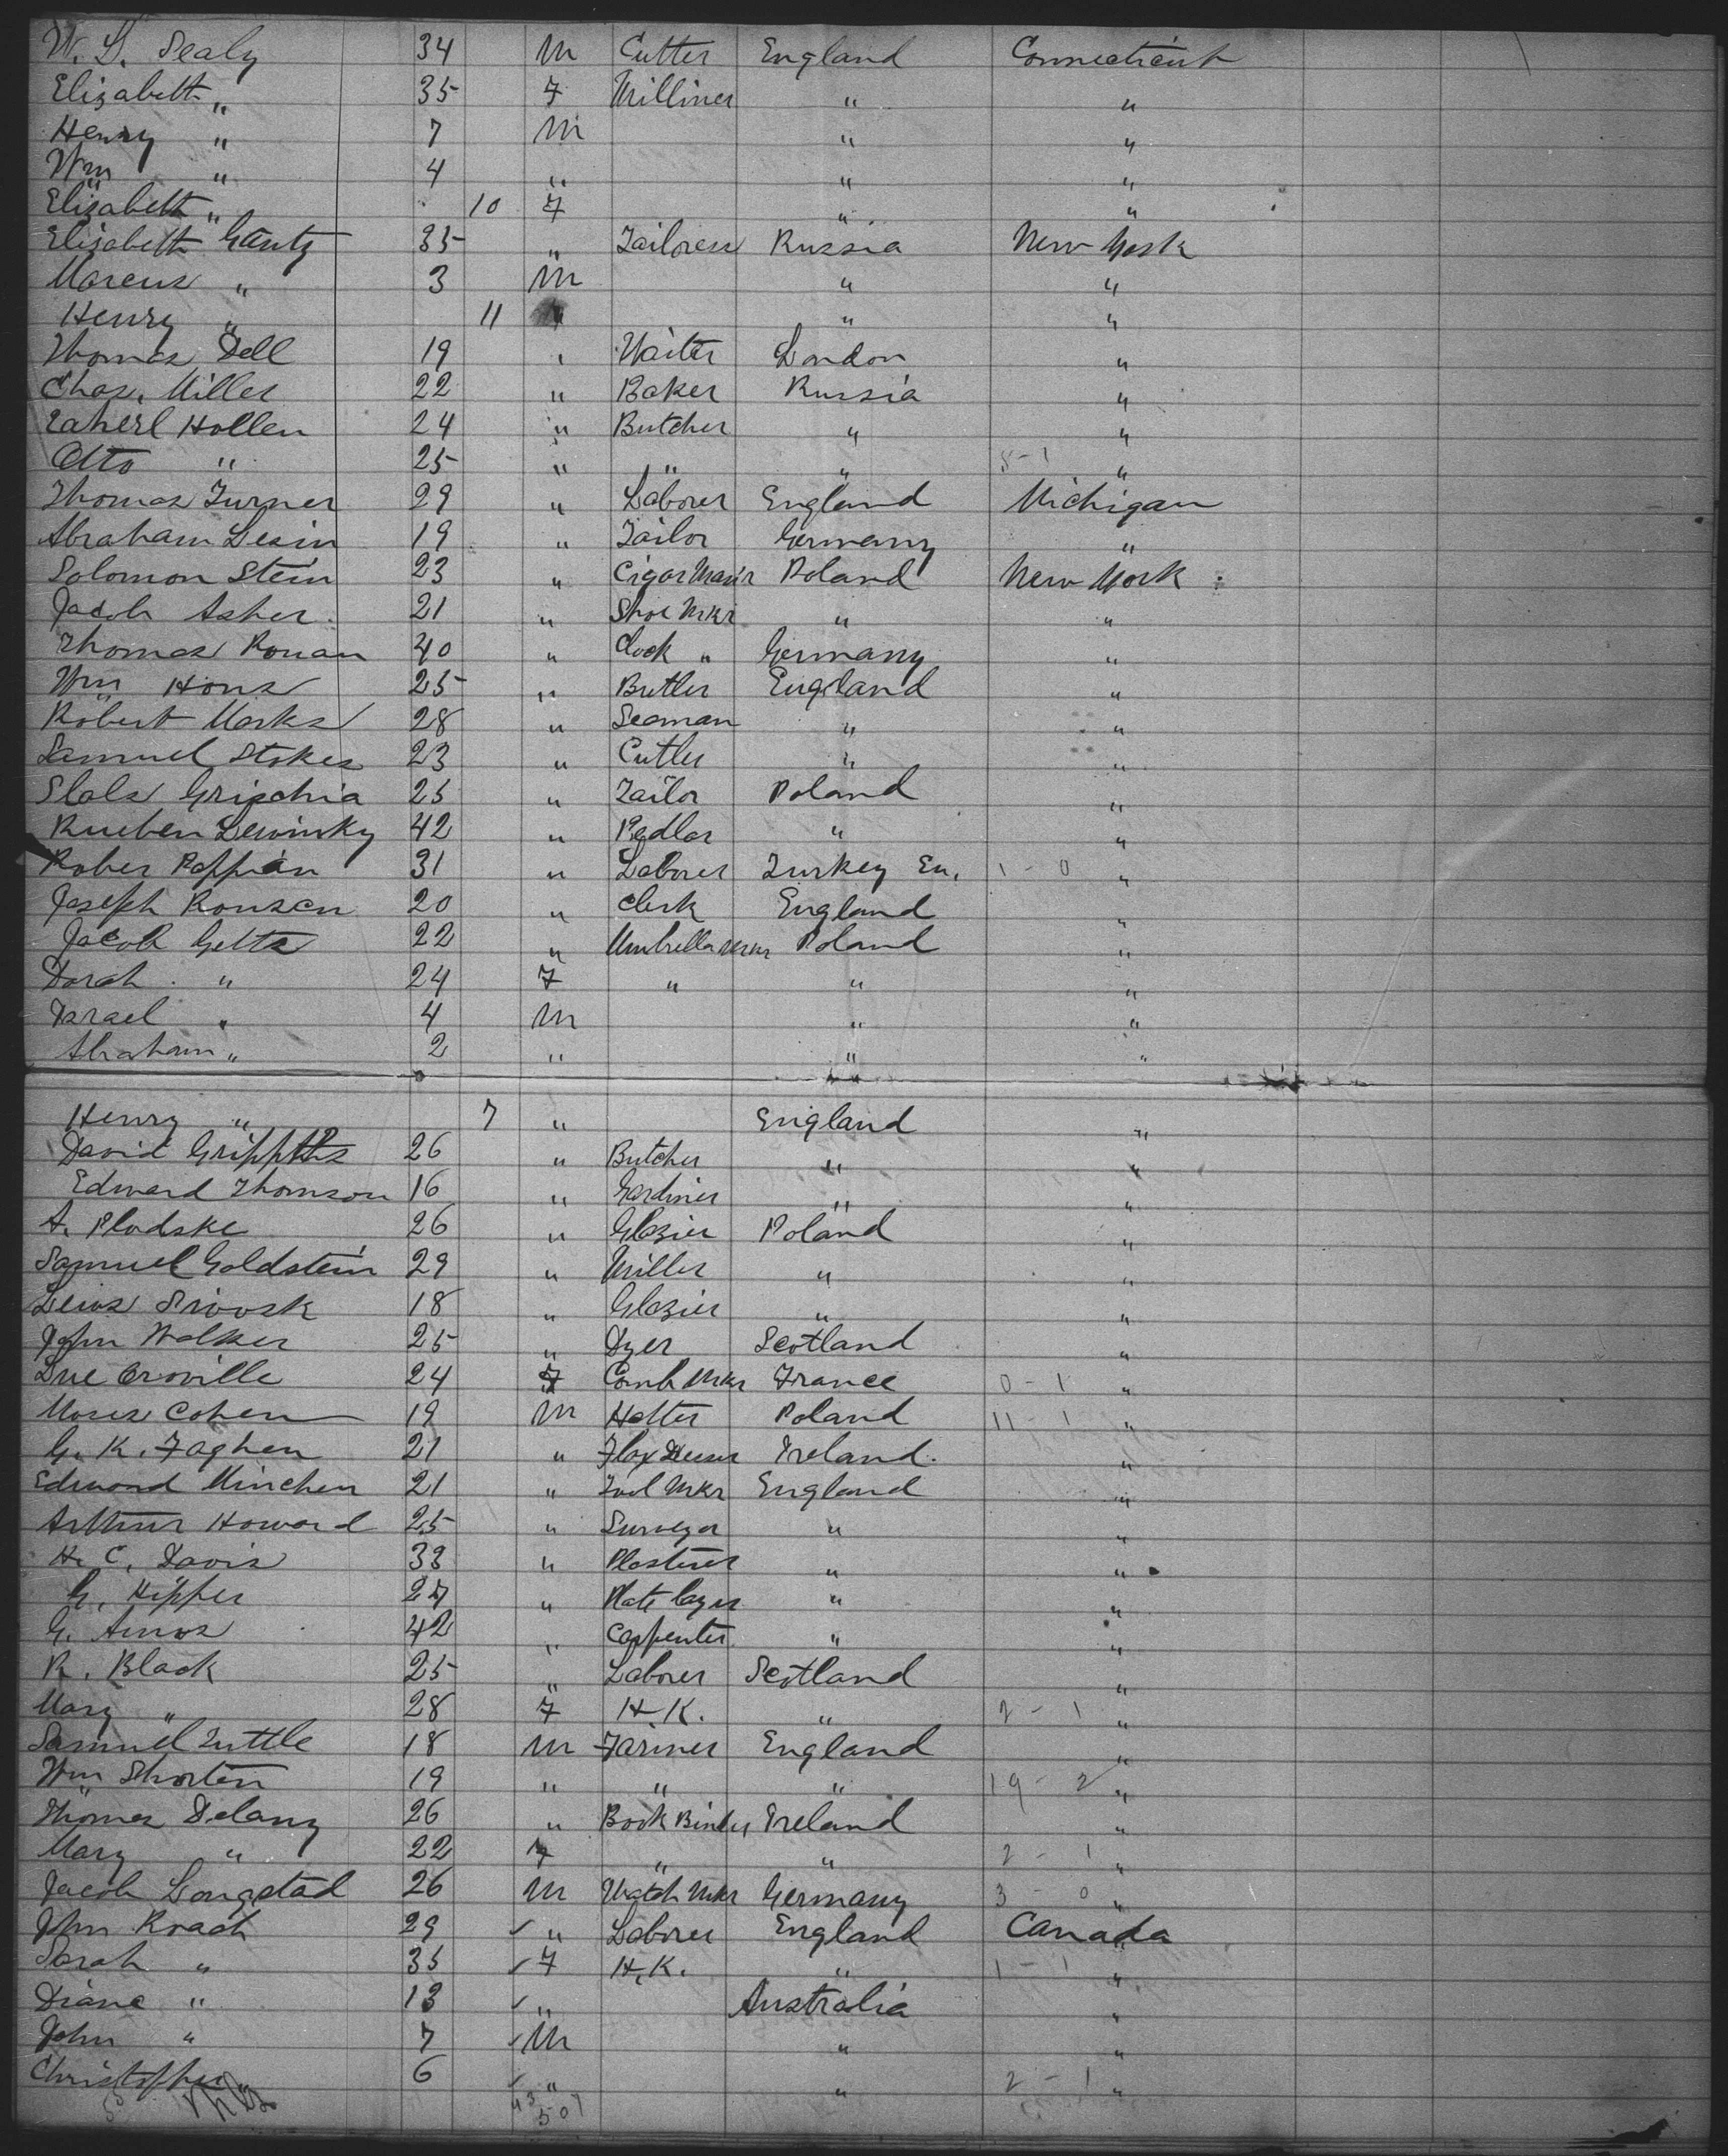 W. G. Sealy 34 M Cutter England Connecticut
Elizabeth " 35 F Milliner " "
Henry " 7 M " "
Wm " 4 " " "
Elizabeth " 10 F " "
Elizabeth Gantz 35 " Tailoress Russia New York
Marcus " 3 M " "
Henry " 11 " "
Thomas Dell 19 " Waiter London "
Chas. Miller 22 " Baker Russia "
Hollen 24 " Butcher " "
Otto " 25 " " " 8-1 "
Thomas Turner 29 " Laborer England Michigan
Abraham Lesin 19 " Tailor Germany "
Solomon Stein 23 " Cigar Poland New York
Jacob Asher 21 " Shoe Mkr " "
Thomas Ronan 40 " Clock " Germany "
Wm Hons 25 " Butler England "
Robert Marks 28 " Seaman " "
Samuel Stokes 23 " Cutler " "
Grischia 25 " Tailor Poland "
Rueben Lewinsky 42 " Pedlar " "
Rober Pappian 31 " Laborer Turkey Eu. 1-0 "
Joseph Ronsen 20 " Clerk England "
Jacob Gelts 22 " Umbrella Mkr Poland "
Dorah " 24 F " " "
Israel " 4 M " "
Abraham " 2 " " "
Henry " 7 " England "
David Gripphths 26 " Butcher " "
Edward Thomson 16 " Gardiner " "
A. Plodske 26 " Glazier Poland "
Samuel Goldstein 29 " Miller " "
18 " Glazier " "
John Walker 25 " Dyer Scotland "
Oroville 24 F Comb Mkr France 0-1 "
Moses Cohen 19 M Hatter Poland 11-1 "
G. K. Faghen 21 " Flax Ireland. "
Edmond Minchen 21 " Tool Mkr England "
Arthur Howard 25 " Surveyor " "
H. C. Davis 33 " Plasterer " "
G. Hipper 27 " Plate layer " "
G. Amos 42 " Carpenter " "
R. Black 25 " Laborer Scotland "
Mary " 28 F H.K. " 2-1 "
Samuel Tuttle 18 M Farmer England "
Wm Shorten 19 " " " 19-2 "
Thomas Delany 26 " Book Binder Ireland "
Mary " 22 F " " 2-1 "
Jacob Longstad 26 M Watch Mkr Germany 3-0 "
John Roach 29 ✓ " Laborer England Canada
Sarah " 35 ✓ F H.K. " 1-1 "
Diana " 13 ✓ " Australia "
John " 7 ✓ M " "
Christopher " 6 ✓ " " 2-1 "